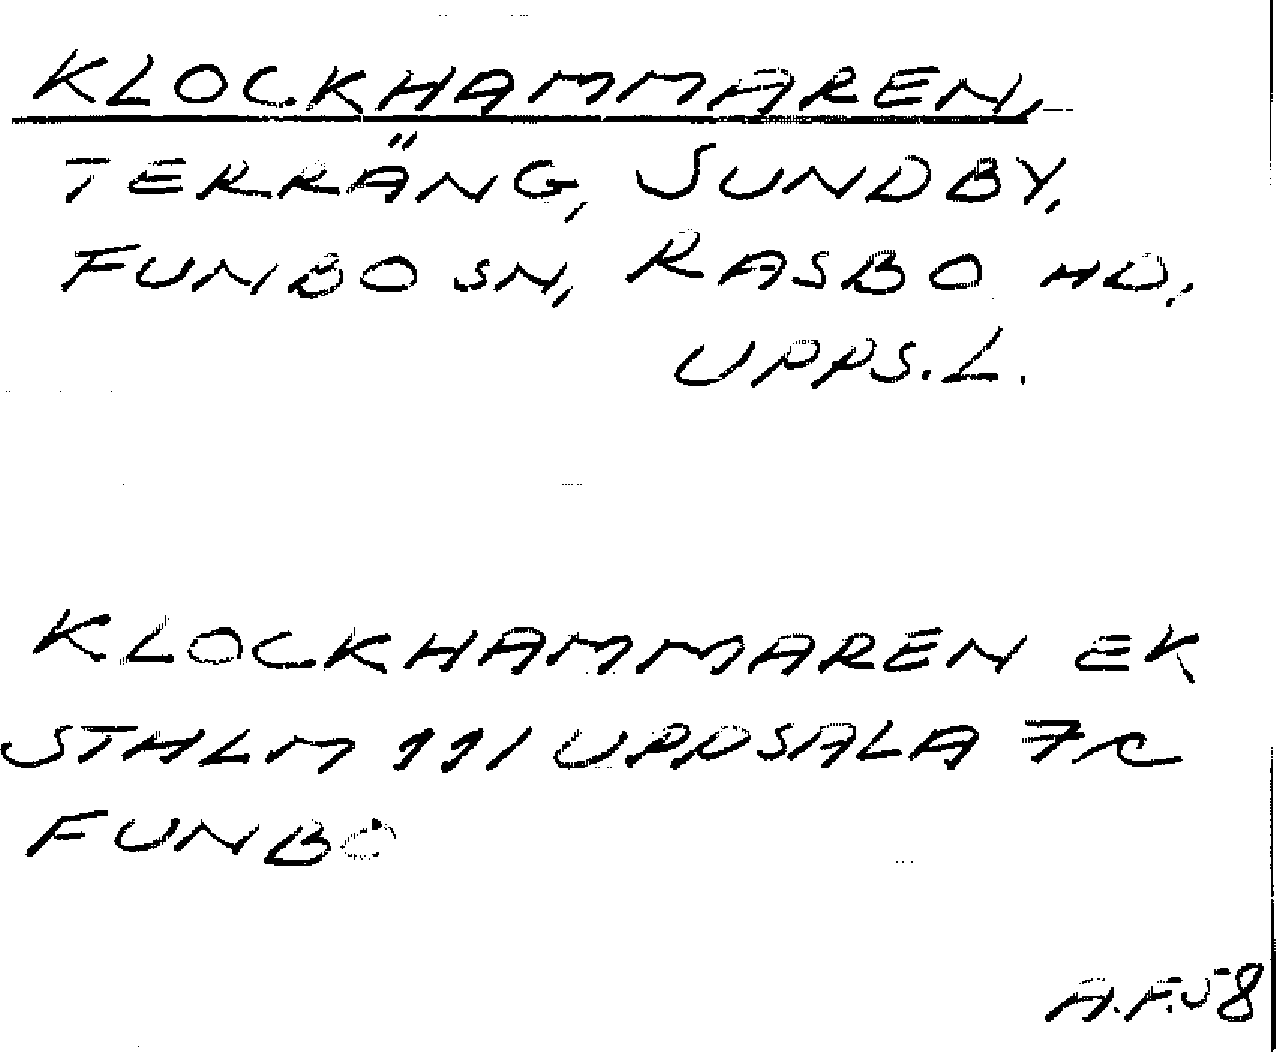 KLOCKHAMMAREN,
TERRÄNG, SUNDBY,
FUNBO SN, RASBO HD,
UPPS. L.
KLOCKHAMMAREN EK
STHLM 111 UPPSALA 7 C
FUNBO
A.F. 58